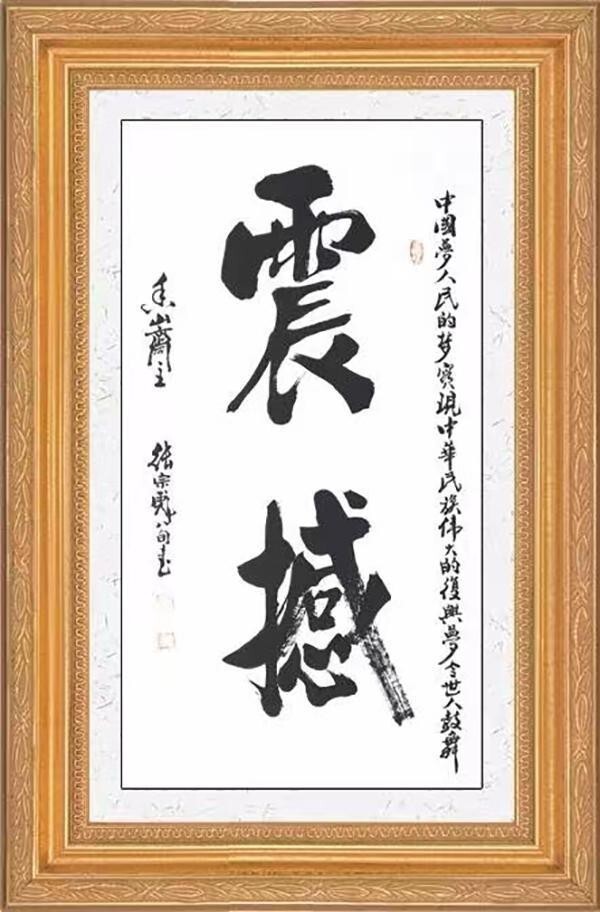 中國夢人民的梦實現中華民族伟大的復興夢令世人鼓舞
震撼
山齋主
張宗八旬書